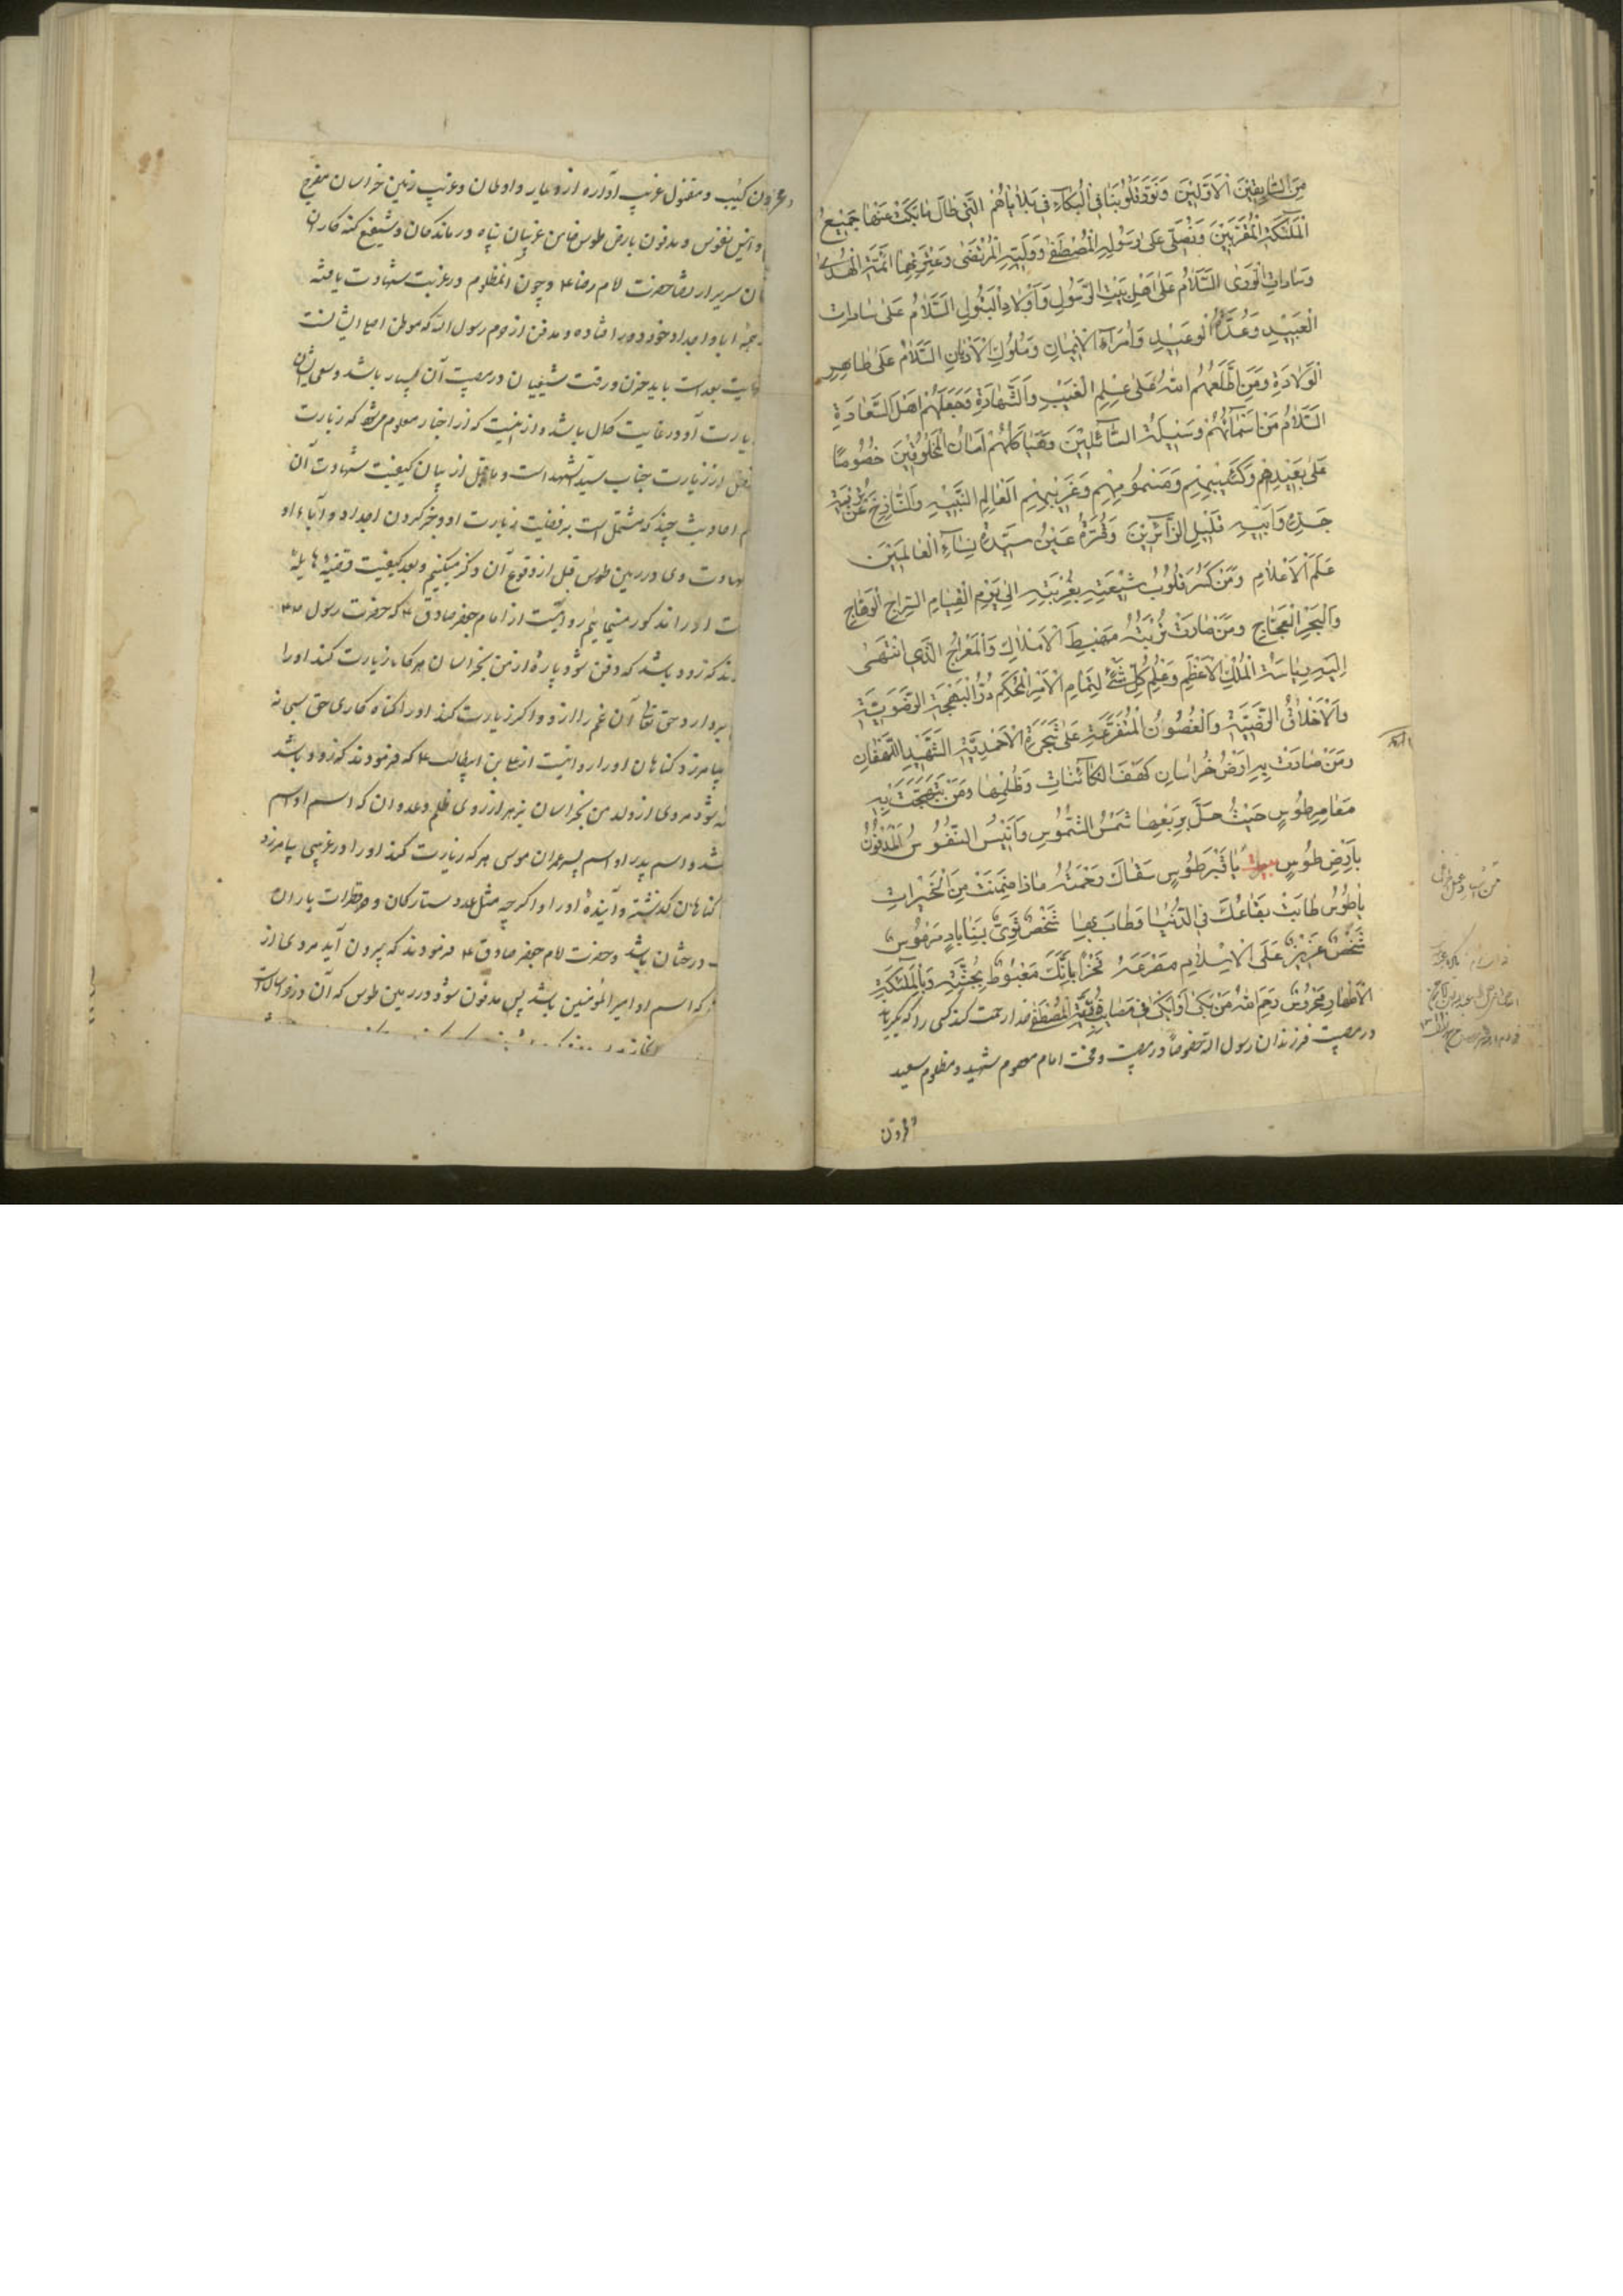 مِنَ السَّابِقِينَ الْاَوَّلِينَ وَنَوِّرْ قُلُوبَنَا فِی الْبُكَآءِ فِی بَلَایَاهُمُ الَّتِی طَالَ مَا بَكَتْ عَنْهَا جَمِیعُ
الْمَلٰٓئِكَةِ الْمُقَرَّبِینَ وَنُصَلِّی عَلٰی رَسُولِهِ الْمُصْطَفٰی وَوَلِیِّهِ الْمُرْتَضٰی وَعِتْرَتِهِمَا اَئِمَّةِ الْهُدٰی
وَسَادَاتِ الْوَرٰی اَلسَّلَامُ عَلٰی اَهْلِ بَیْتِ الرَّسُولِ وَاَوْلَادِ الْبَتُولِ اَلسَّلَامُ عَلٰی سَادَاتِ
الْعَبِیدِ وَعُدَدِ الْوَعِیدِ وَاُمَرَآءِ الْاِیمَانِ وَمُلُوكِ الْاَدْیَانِ اَلسَّلَامُ عَلٰی طَاهِرِ
الْوِلَادَةِ وَمَنْ اَطْلَعَهُمُ اللهُ عَلٰی عِلْمِ الْغَیْبِ وَالشَّهَادَةِ وَجَعَلَهُمْ اَهْلَ السَّعَادَةِ
اَلسَّلَامُ مَنْ اَسْمَآئُهُمْ وَسِیلَةُ السَّآئِلِینَ وَهَیَاكِلُهُمْ اَمَانُ الْمَخْلُوقِینَ خُصُوصًا
عَلٰی بَعِیدِهِمْ وَكَئِیبِهِمْ وَمَسْمُومِهِمْ وَغَرِیبِهِمُ الْعَالِمِ النَّبِیهِ وَالنَّازِحِ عَنْ تُرْبَةِ
جَدِّهِ وَاَبِیهِ قَلِیلِ الزَّآئِرِینَ وَقُرَّةُ عَیْنِ سَیِّدَةِ نِسَآءِ الْعَالَمِینَ
عَلَمِ الْاَعْلَامِ وَمَنْ كُسِرَ قُلُوبُ شِیعَتِهِ بِغُرْبَتِهِ اِلٰی یَوْمِ الْقِیَامِ السِّرَاجِ الْوَهَّاجِ
وَالْبَحْرِ الْعَجَّاجِ وَمَنْ صَارَتْ تُرْبَتُهُ مَهْبِطَ الْاَمْلَاكِ وَالْمِعْرَاجِ الَّذِی انْتَهٰی
اِلَیْهِ رِیَاسَةُ الْمُلْكِ الْاَعْظَمِ وَعِلْمُ كُلِّ شَیْءٍ لِتَمَامِ الْاَمْرِ الْمُحْكَمِ ذُو الْبَهْجَةِ الرَّضَوِیَّةِ
وَالْاَخْلَاقِ الرَّضِیَّةِ وَالْغُصُونِ الْمُتَفَرِّعَةِ عَلٰی شَجَرَةِ الْاَحْمَدِیَّةِ الشَّهِیدِ اللَّهْفَانِ
وَمَنْ صَارَتْ بِهِ اَرْضُ خُرَاسَانَ كَهْفَ الْكَآئِنَاتِ وَظُلَمِهَا وَمَنْ تَبَهَّجَتْ بِهِ
مَعَالِمِ طُوسٍ حَیْثُ حَلَّ بِرَبْعِهَا شَمْسُ الشُّمُوسِ وَاَنِیسُ النُّفُوسِ الْمَدْفُونُ
بِاَرْضِ طُوسٍ یَا قَبْرَ طُوسٍ سَقَاكَ رَحْمَتُهُ مَاذَا ضَمِنْتَ مِنَ الْخَیْرَاتِ
یَا طُوسُ طَابَتْ بِقَاعُكَ فِی الدُّنْیَا وَطَابَ بِهَا شَخْصٌ ثَوٰی بِسَنَابَادِ مَرْمُوسُ
شَخْصٌ عَزِیزٌ عَلَی الْاِسْلَامِ مَصْرَعُهُ فَخْرًا بِاَنَّكَ مَغْبُوطٌ بِجُثَّتِهِ وَبِالْمَلٰٓئِكَةِ
الْاَطْهَارِ مَحْرُوسُ رَحِمَ اللهُ مَنْ بَكٰی اَوْ اَبْكٰی فِی مَصَائِبِ ذُرِّیَّةِ الْمُصْطَفٰی خدا رحمت كند كسی را كه بگرید
در مصیبت فرزندان رسول الله خصوصًا در مصیبت و محنت امام معصوم شهید و مظلوم سعید
محزون
محزون كئیب و مقتول غریب آواره از دیار و اوطان و غریب زمین خراسان مفرح
و انیس نفوس و مدفون بارض طوس ضامن غریبان پناه درماندكان و شفیع كنه كاران
سریر ارتضا حضرت امام رضا ع و چون آن مظلوم در غربت شهادت یافته
ابا و اجداد خود دور افتاده و مدفن از حرم رسول الله كه موطن اصلی ایشانست
بغایت بعد است باید حزن و رقت شیعیان در مصیبت آن بسیار باشد و سعی ایشان
زیارت او در غایت كمال باشد و از اینست كه از اخبار معلوم میشود كه زیارت
افضل از زیارت جناب سید الشهدا است و ما قبل از بیان كیفیت شهادت آن
احادیث چند كه مشتمل است بر فضیلت زیارت او و خبر كردن اجداد و آباء او
شهادت وی در زمین طوس قبل از وقوع آن ذكر میكنیم و بعد كیفیت قضیه هایله
او را مذكور مینمائیم روایتست از امام جعفر صادق ع كه حضرت رسول ص
كه زود باشد كه دفن شود پاره از من بخراسان هركه زیارت كند او را
بردارد حق تعالی آن غم را از او و اكر زیارت كند او را كناه كاری حق سبحانه
بیامرزد كناهان او را روایتست از علی بن ابیطالب ع كه فرمودند كه زود باشد
شود مردی از ولد من بخراسان بزهر از روی ظلم و عدوان كه اسم او اسم
باشد و اسم پدر او اسم پسر عمران موسی هركه زیارت كند او را در غریبی بیامرزد
كناهان كذشته و آینده او را و اكرچه مثل عدد ستاركان و قطرات باران
درختان باشد و حضرت امام جعفر صادق ع فرمودند كه بیرون آید مردی از
كه اسم او امیر المؤمنین باشد پس مدفون شود در زمین طوس كه آن در خراسانست